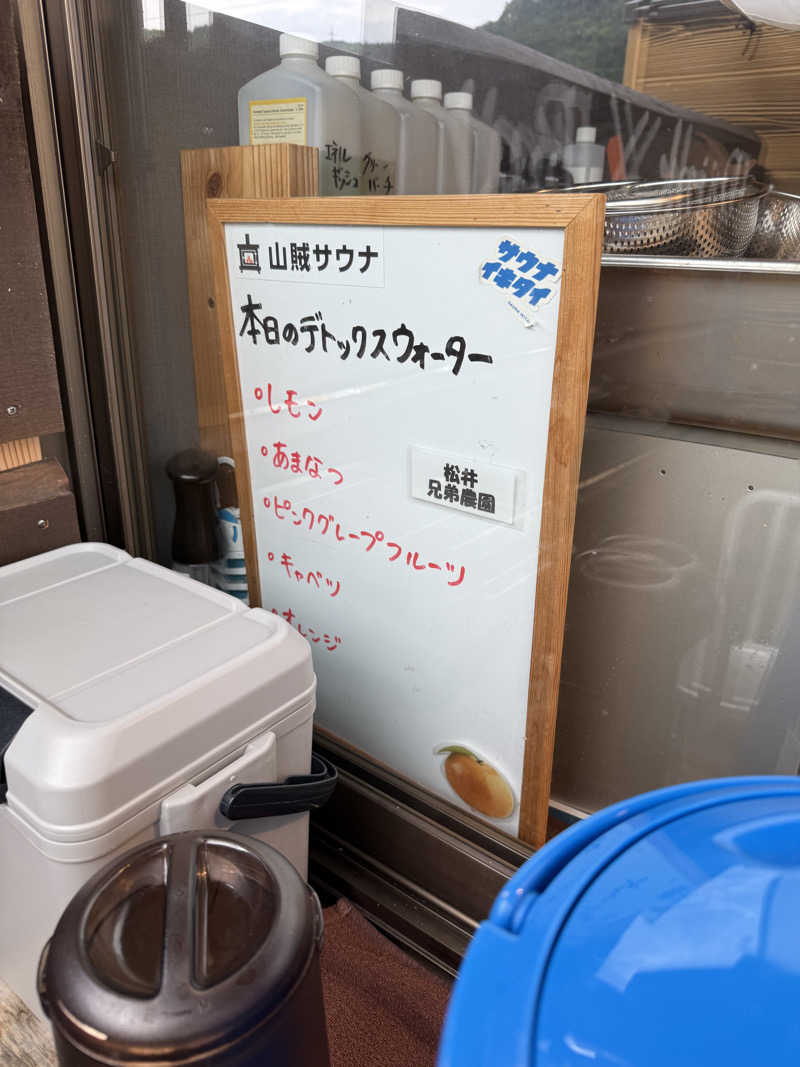 エネル
ギッシュ
グリーン
バーチ
山賊サウナ
サウナ
イキタイ
本日のデトックスウォーター
°レモン
°あまなつ
松井
兄弟農園
°ピンクグレープフルーツ
°キャベツ
°オレンジ